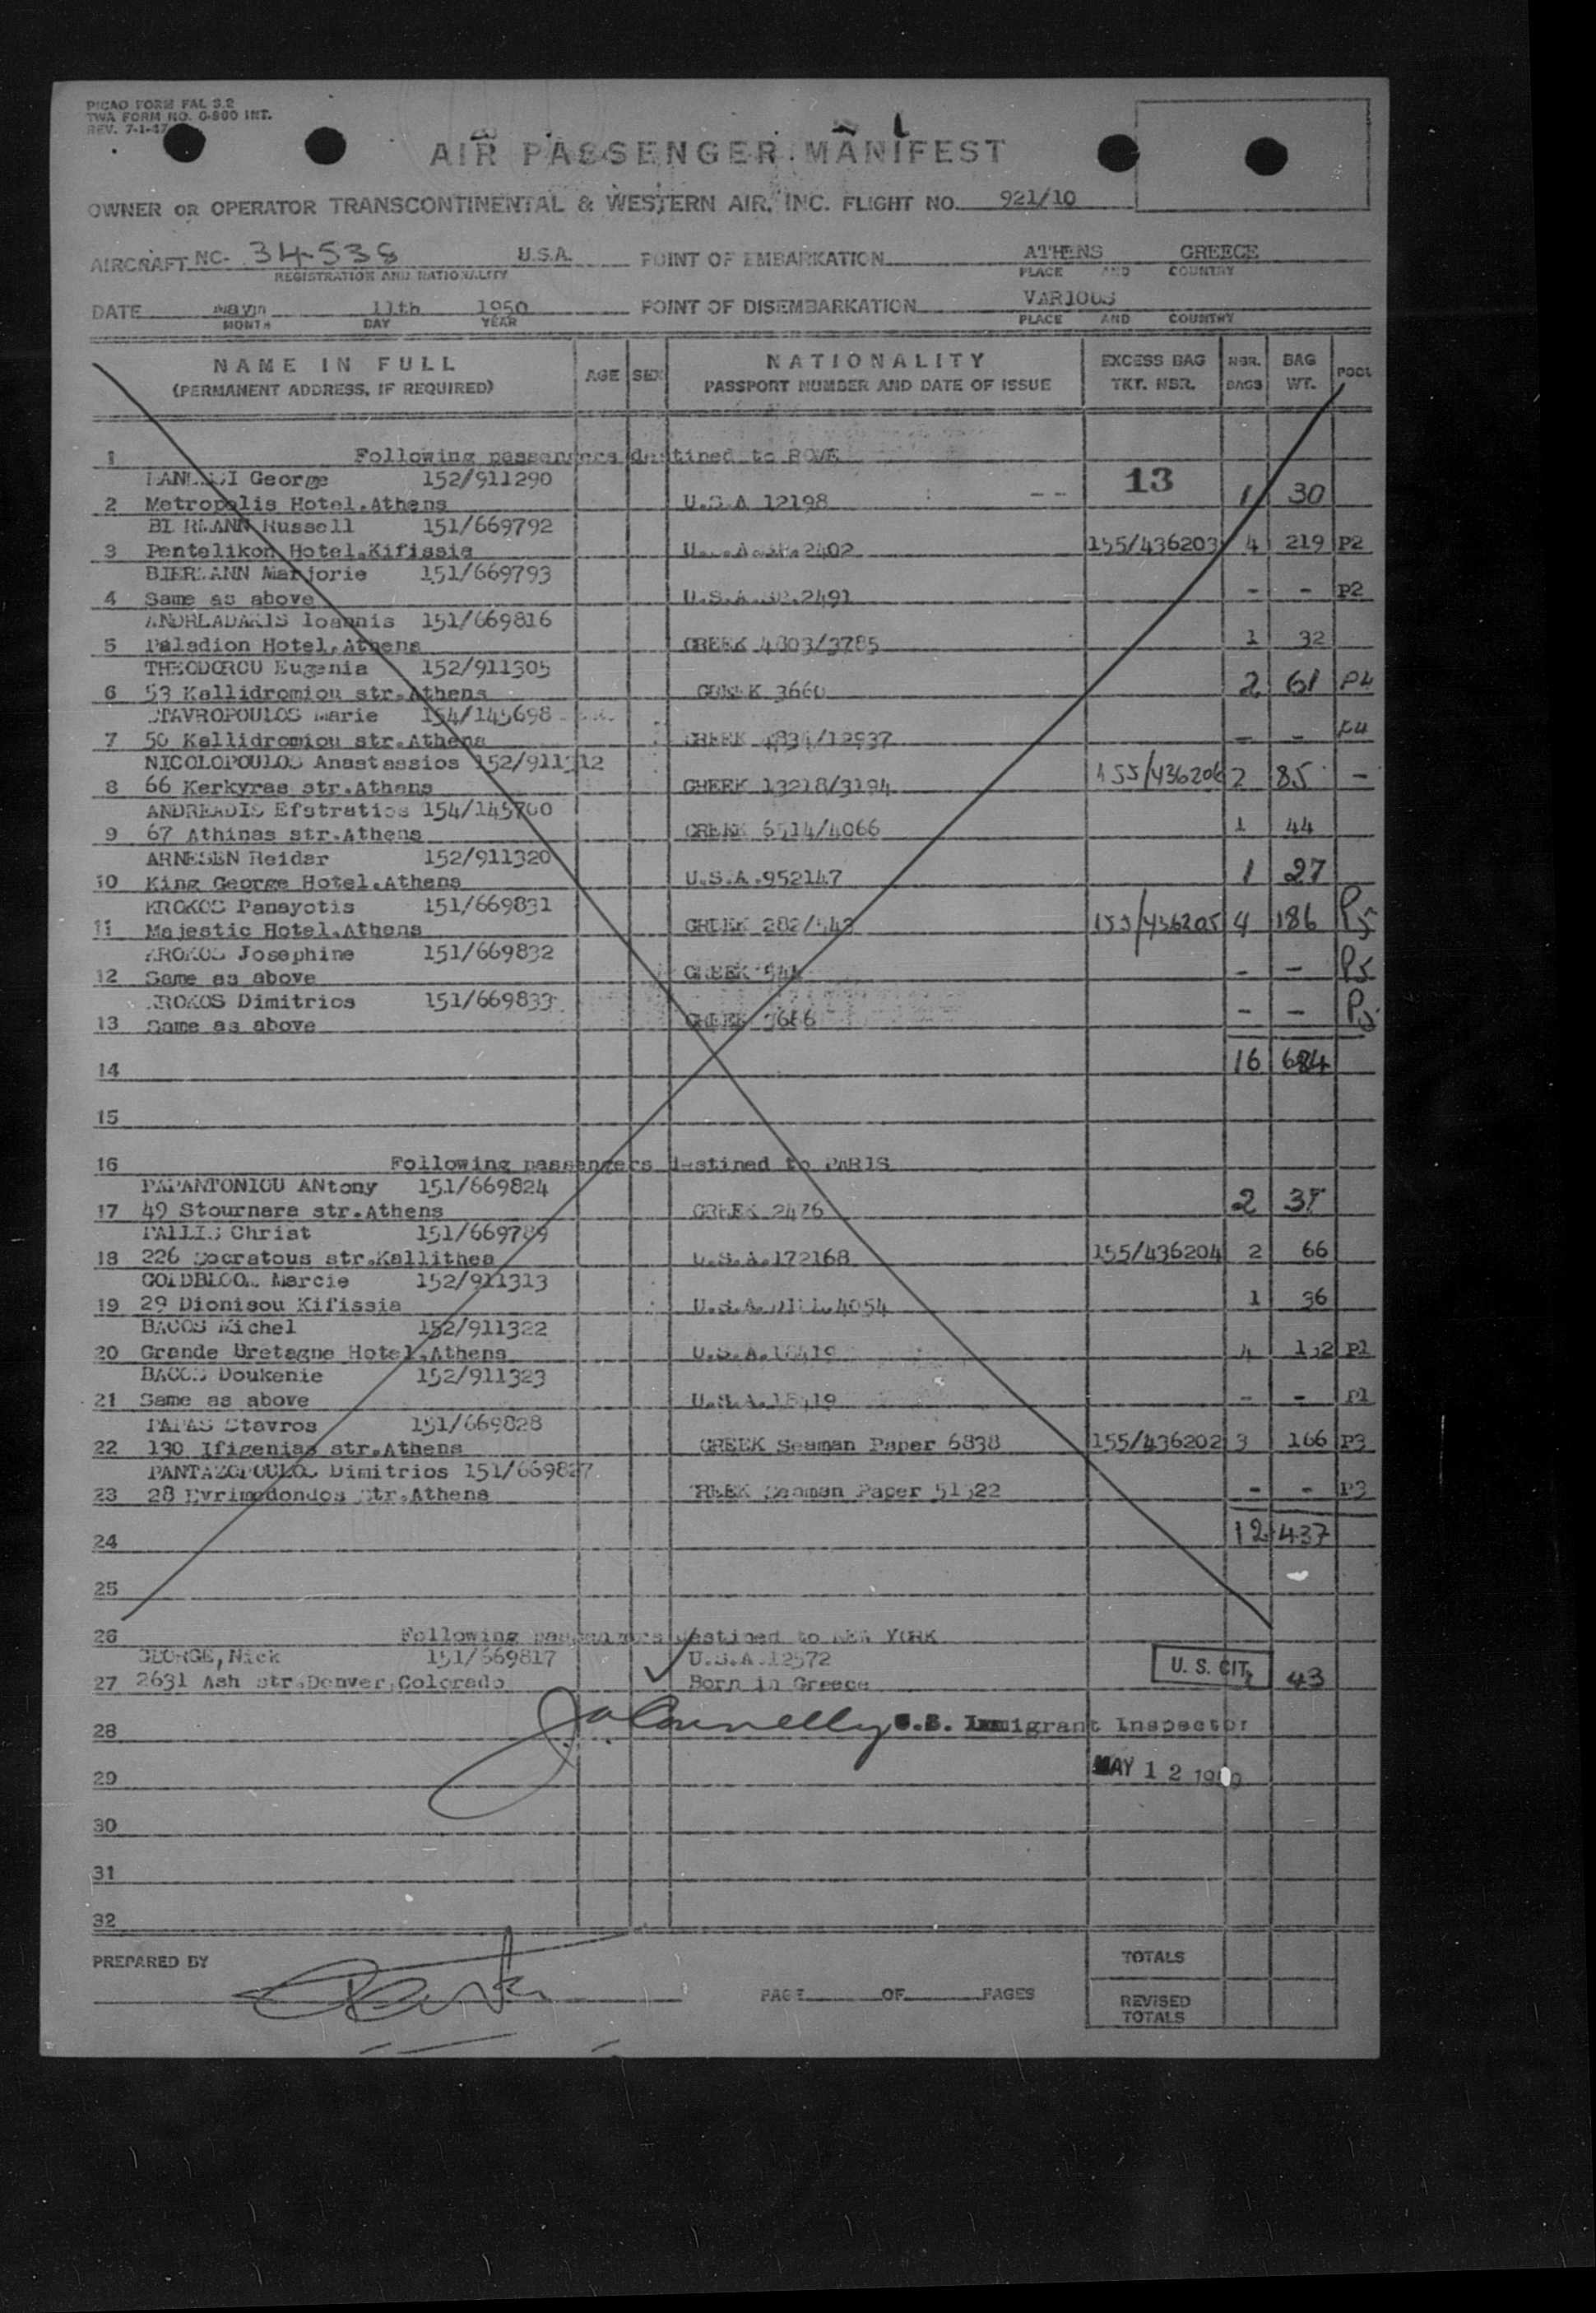 PICAO FORM FAL 3.2
TWA FORM NO. O-800 INT.
REV. 7-1-47
AIR PASSENGER MANIFEST
OWNER OR OPERATOR TRANSCONTINENTAL & WESTERN AIR, INC. FLIGHT NO. 921/10
AIRCRAFT NC- 34538 U.S.A. POINT OF EMBARKATION ATHENS GREECE
REGISTRATION AND NATIONALITY PLACE AND COUNTRY
DATE 11th 1950 POINT OF DISEMBARKATION VARIOUS
MONTH DAY YEAR PLACE AND COUNTRY
NAME IN FULL AGE SEX NATIONALITY EXCESS BAG NBR. BAG POOL
(PERMANENT ADDRESS, IF REQUIRED) PASSPORT NUMBER AND DATE OF ISSUE TKT. NBR. BAGS WT.
1 Following passengers destined to ROME
George 152/911290 13
2 Metropolis Hotel.Athens U.S.A 12198 1 30
Russell 151/669792
3 Pentelikon Hotel.Kifissia 2402 155/436203 4 219 P2
BIERMANN Marjorie 151/669793
4 Same as above U.S.A. 2491 - - P2
ANDREADAKIS Ioannis 151/669816
5 Paladion Hotel,Athens GREEK 4803/3785 1 32
THEODOROU Eugenia 152/911305
6 53 Kallidromiou str.Athens GREEK 3660 2 61 P4
STAVROPOULOS Marie 154/145698
7 50 Kallidromiou str.Athens GREEK 4834/12937 - - P4
NICOLOPOULOS Anastassios 152/911312
8 66 Kerkyras str.Athens GREEK 13218/3194 155/436206 2 85 -
ANDREADIS Efstratios 154/145700
9 67 Athinas str.Athens GREEK 6514/4066 1 44
ARNESEN Reidar 152/911320
10 King George Hotel.Athens U.S.A.952147 1 27
KROKOS Panayotis 151/669831
11 Majestic Hotel.Athens GREEK 282/543 155/436205 4 186 P5
KROKOS Josephine 151/669832
12 Same as above GREEK - - P5
KROKOS Dimitrios 151/669833
13 Same as above GREEK 3666 - - P5
14 16 684
15
16 Following passengers destined to PARIS
PAPANTONIOU ANtony 151/669824
17 49 Stournara str.Athens GREEK 2476 2 37
PALLIS Christ 151/669789
18 226 Socratous str.Kallithea U.S.A.172168 155/436204 2 66
GOLDBLOOM Marcie 152/911313
19 29 Dionisou Kifissia U.S.A. 4054 1 36
BACOS Michel 152/911322
20 Grande Bretagne Hotel.Athens U.S.A.18419 4 132 P1
BACOS Doukenie 152/911323
21 Same as above U.S.A.18419 - - P1
PAPAS Stavros 151/669828
22 130 Ifigenias str.Athens GREEK Seaman Paper 6838 155/436202 3 166 P3
PANTAZOPOULOS Dimitrios 151/669827
23 28 Evrimedondos Str.Athens GREEK Seaman Paper 51522 - - P3
24 12 437
25
26 Following passengers destined to NEW YORK
GEORGE,Nick 151/669817 U.S.A.12572
27 2631 Ash str.Denver,Colorado Born in Greece U. S. CIT. 43
28 U.S. Immigrant Inspector
29 MAY 12 1950
30
31
32
PREPARED BY TOTALS
PAGE OF PAGES REVISED
TOTALS